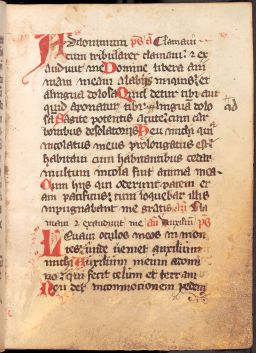 Ad dominum ps Clamaui
cum tribularer clamaui: ⁊ ex
audiuit me Domine libera ani
mam meam a labijs iniquis: et
a lingua dolosa Quid detur tibi aut
quid aponatur tibi: ad linguam dolo
sa Sagite potentis acute: cum car
bonibus desolatorijs Heu michi qui
incolatus meus prolongatus est:
habitaui cum habitantibus cedar
multum incola fuit anima mea
Cum hijs qui oderunt pacem er
am pacificus: cum loquebar illis
inpugnabant me gratis an Cla
maui ⁊ exaudiuit me an Auxilium ps
Leuaui oculos meos in mon
tes: unde ueniet auxilium
michi Auxilium meum a domi
no: qui fecit celum et terram
Non det in commotionem pedem